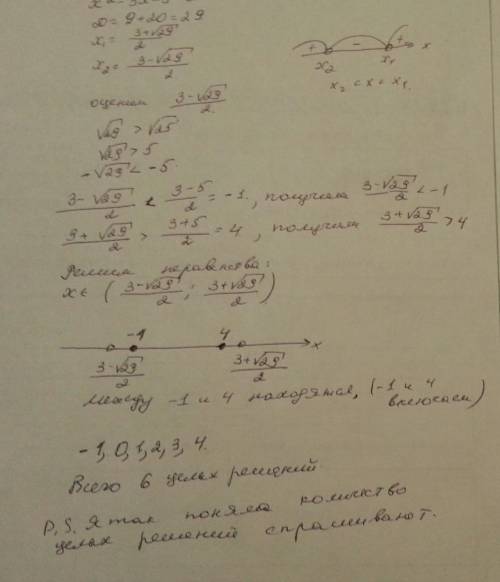 x² - 3x - 5
D = 9 + 20 = 29
x₁ = (3+√29)/2
x₂ = (3-√29)/2
+ - + x
x₂ x₁
x₂ < x < x₁.
оценим (3-√29)/2.
√29 > √25
√29 > 5
-√29 < -5.
(3-√29)/2 < (3-5)/2 = -1., получим (3-√29)/2 < -1
(3+√29)/2 > (3+5)/2 = 4, получим (3+√29)/2 > 4
Решим неравенства:
x ∈ ((3-√29)/2; (3+√29)/2)
-1 4 x
(3-√29)/2 (3+√29)/2
Между -1 и 4 находятся, (-1 и 4
включаем)
-1, 0, 1, 2, 3, 4.
Всего 6 целых решений.
P.S. Я так поняла количство
целых решений спрашивают.